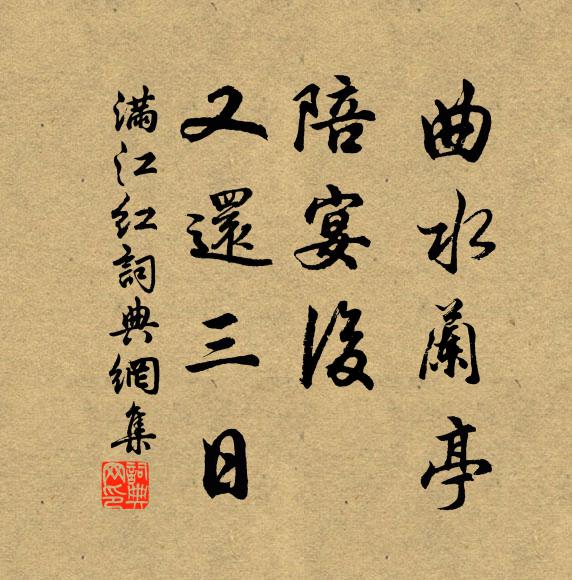 曲水蘭亭
陪宴後
又還三日
滿江紅詞典網集
詞典网印